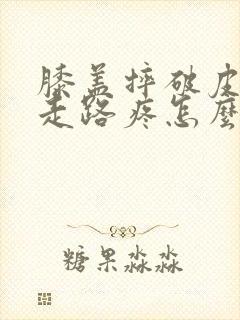 膝盖摔破皮
走路疼怎麼
糖果淼淼